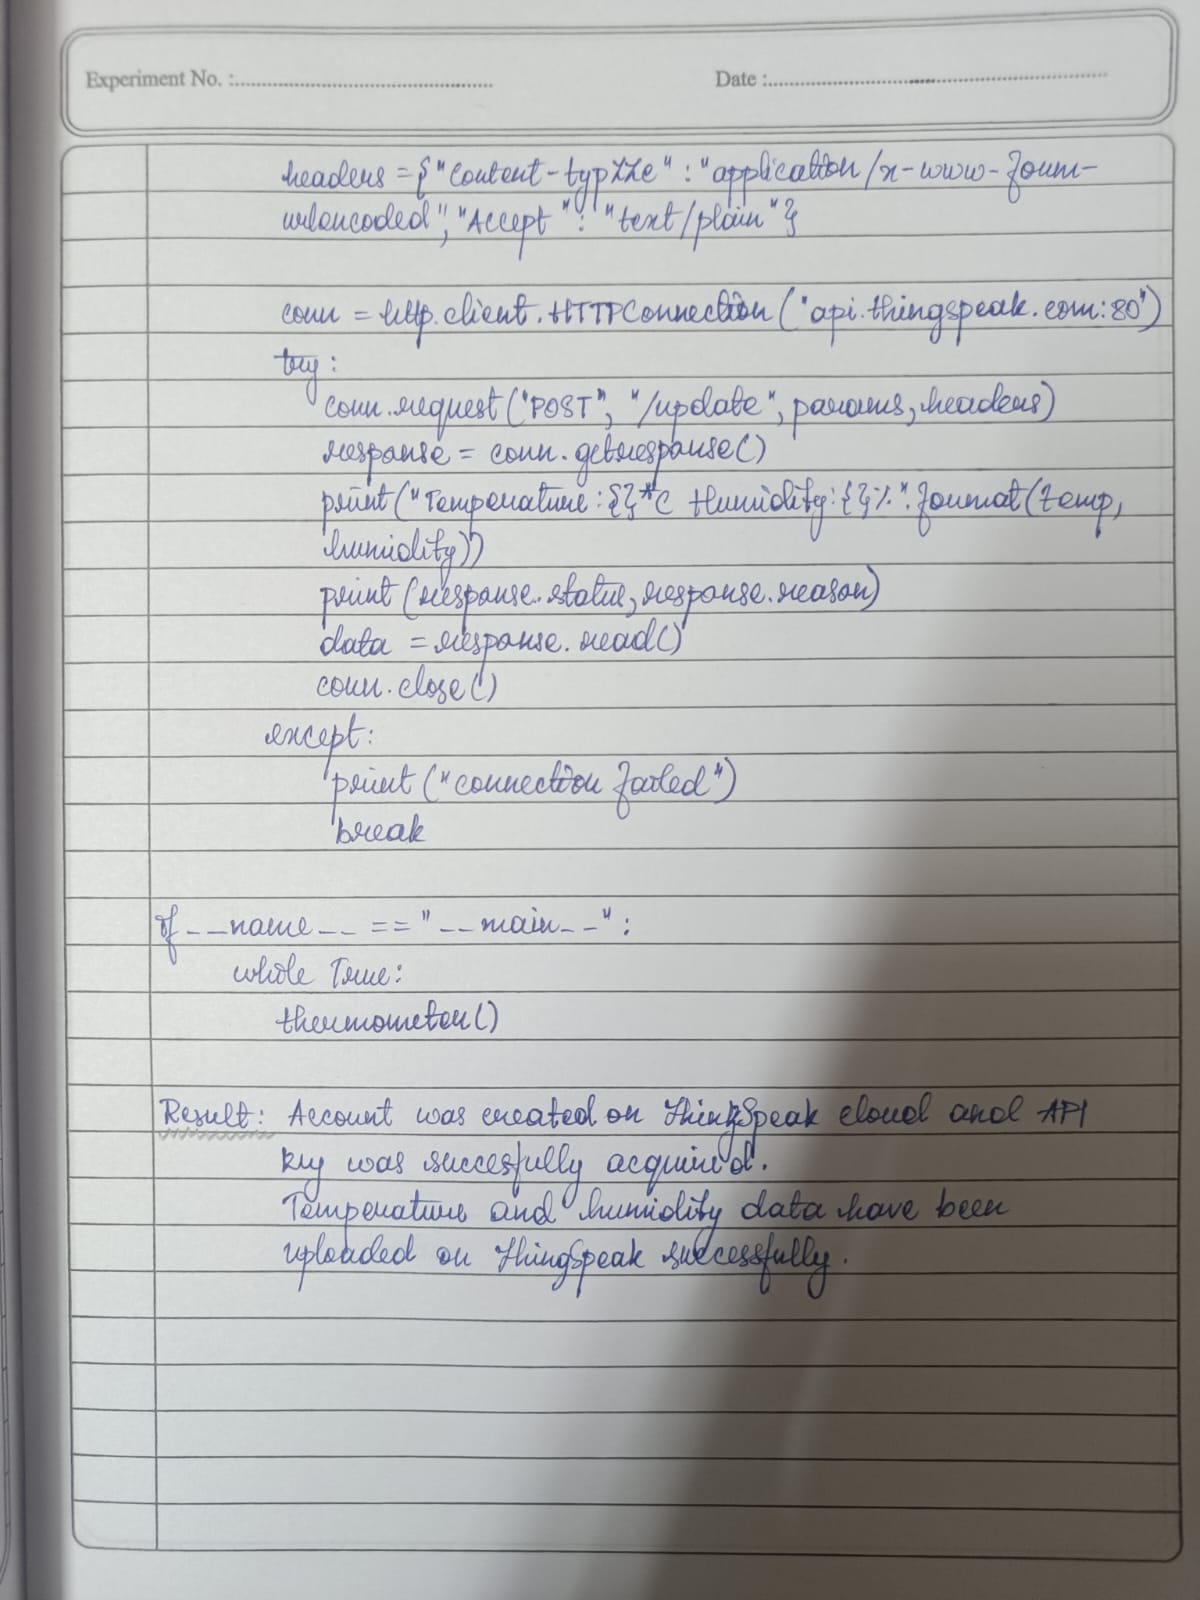 Experiment No. :
Date :
headers = {"Content-typZZe" : "application/x-www-form-
urlencoded", "Accept" : "text/plain"}
conn = http.client.HTTPConnection("api.thingspeak.com:80")
try:
conn.request("POST", "/update", params, headers)
response = conn.getresponse()
print("Temperature:{}*C Humidity:{}%".format(temp,
humidity))
print(response.status, response.reason)
data = response.read()
conn.close()
except:
print("connection failed")
break
if __name__ == "__main__":
while True:
thermometer()
Result: Account was created on ThingSpeak cloud and API
key was succesfully acquired.
Temperature and humidity data have been
uploaded on ThingSpeak successfully.